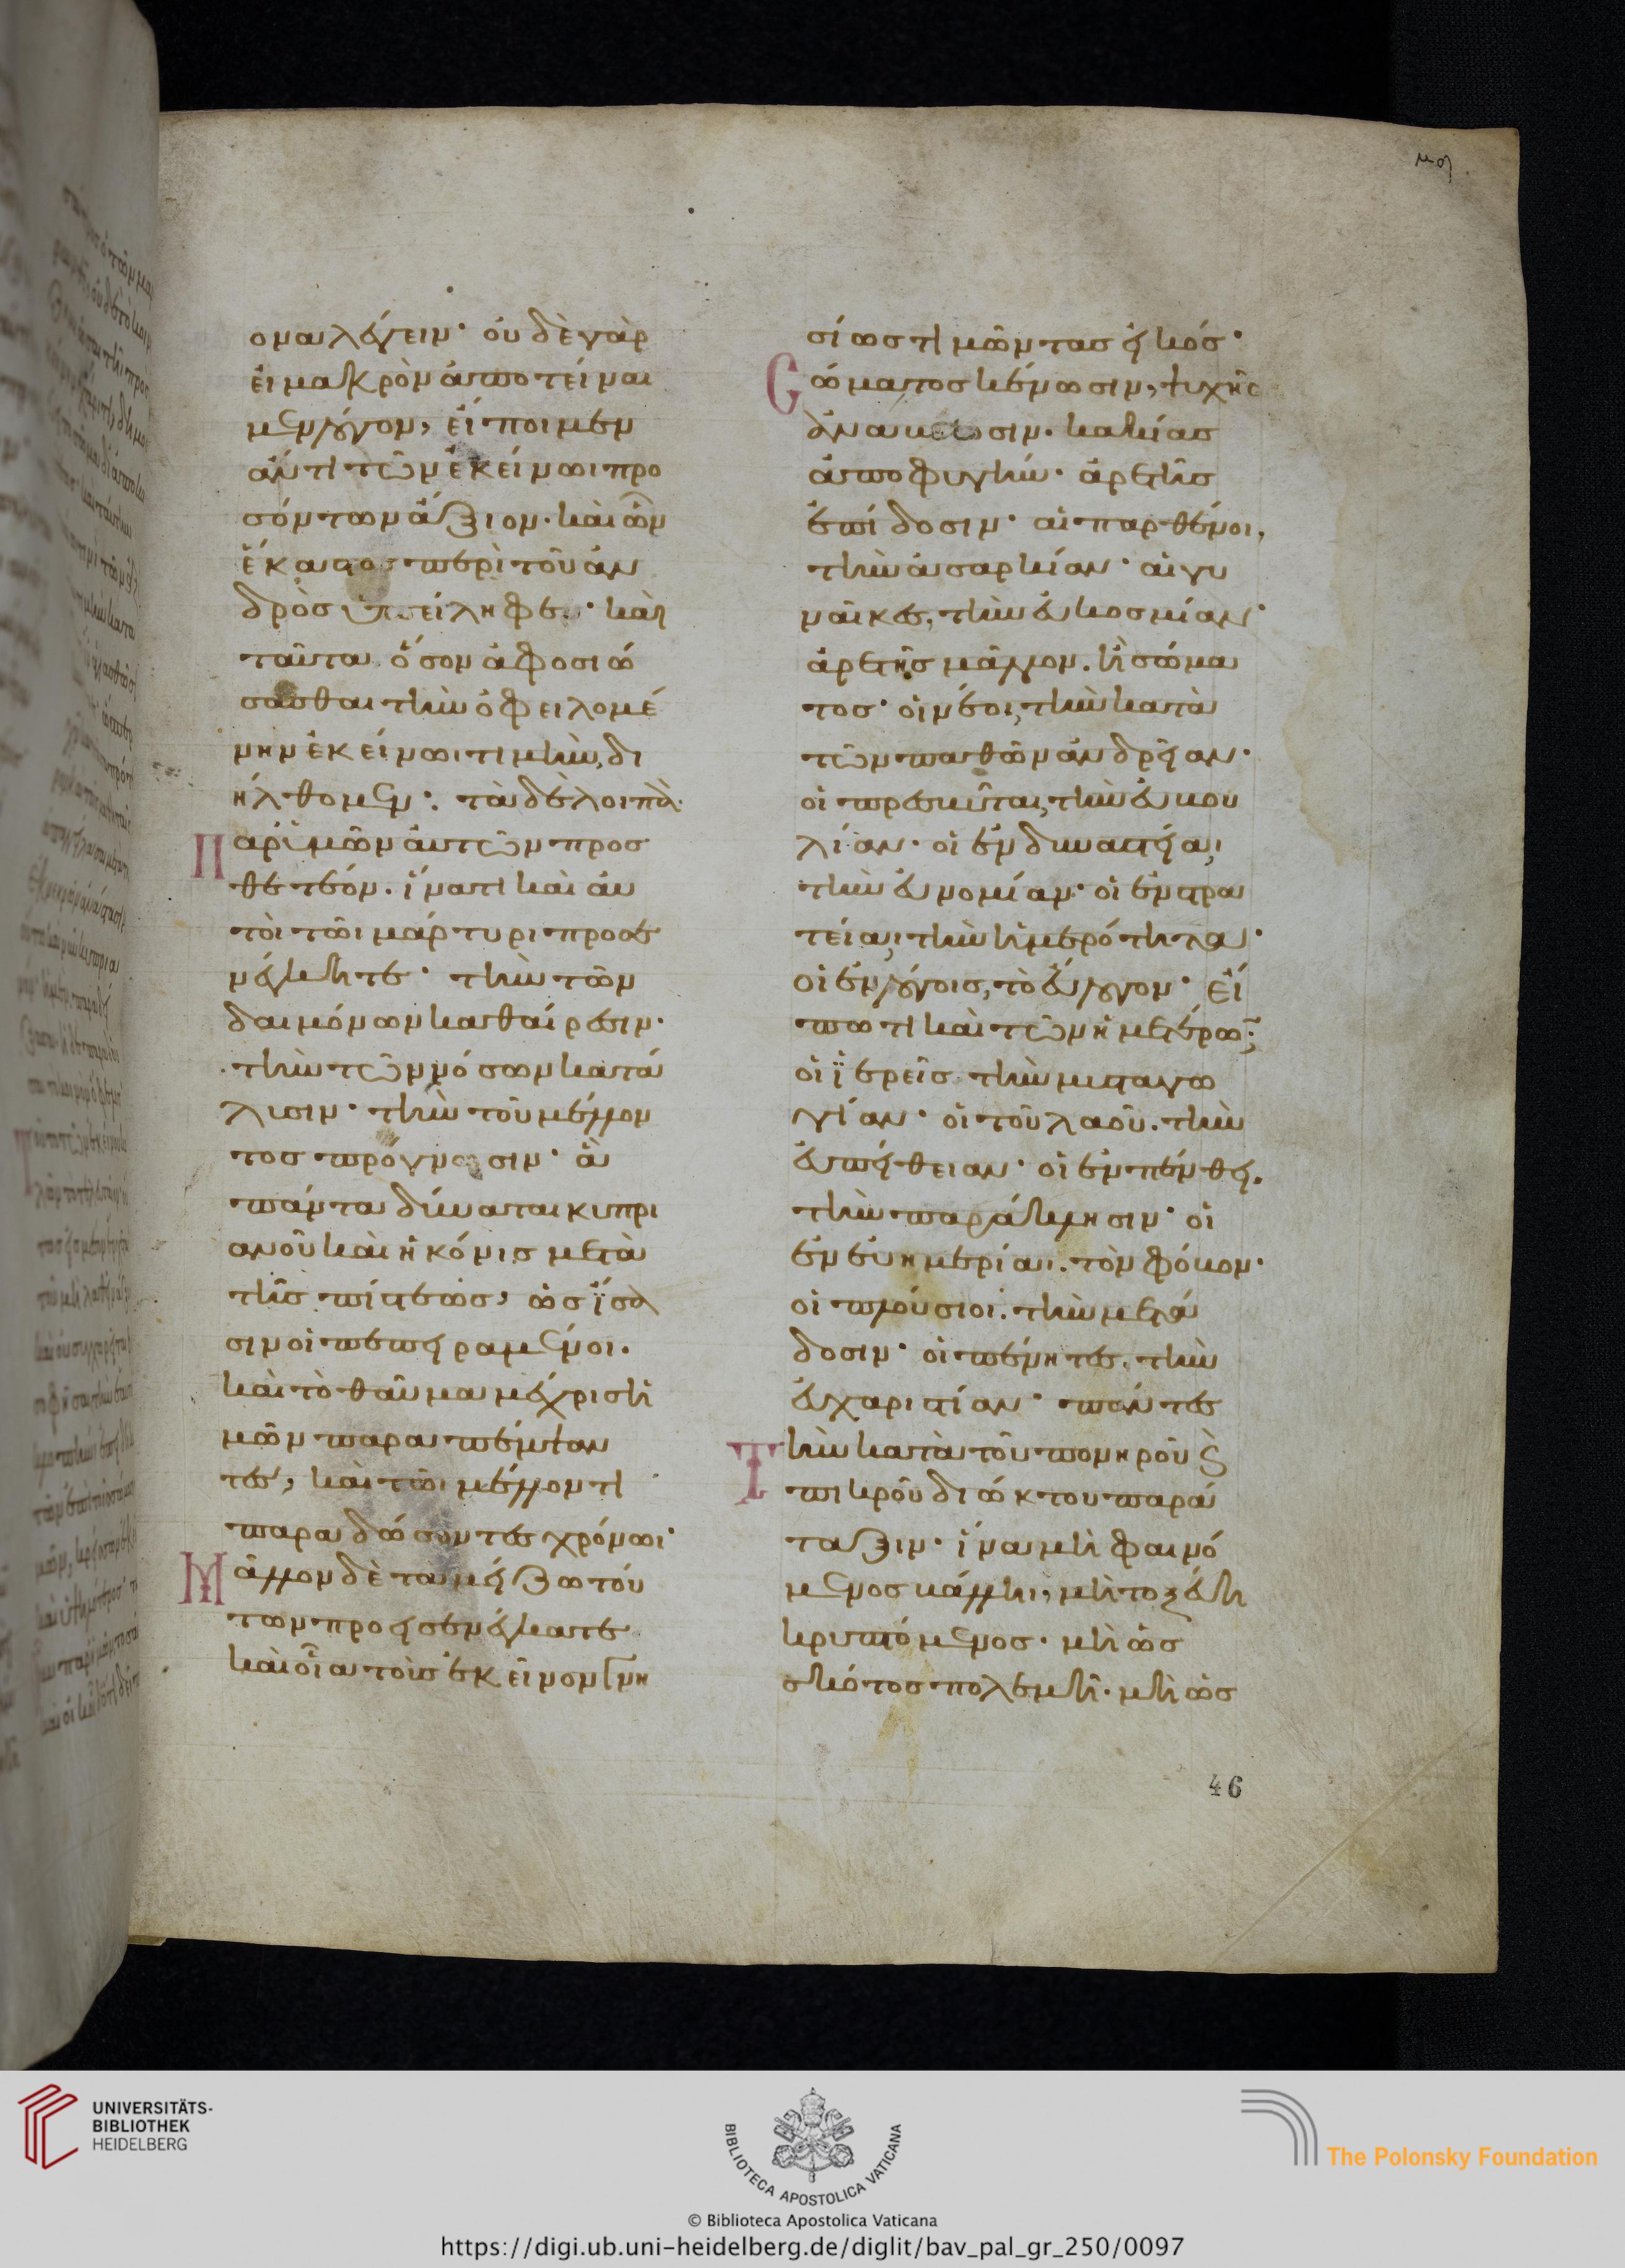 μϛ
ομαι λέγειν· οὐδὲ γὰρ
εἰ μακρὸν ἀποτείναι
μεν λόγον, εἴποιμεν
ἄν τι τῶν ἐκείνωι προ
σόντων ἄξιον· καὶ ὧν
ἕκαστος περὶ τοῦ ἀν
δρὸς ὑπείληφεν· καὶ
ταῦτα ὅσον ἀφοσιώ
σασθαι τὴν ὀφειλομέ
νην ἐκείνωι τιμὴν, δι
ήλθομεν· τὰ δὲ λοιπὰ
παρ ὑμῶν αὐτῶν προσ
θετέον· ἵνα τι καὶ αὐ
τοὶ τῶι μάρτυρι προσε
νέγκητε· τὴν τῶν
δαιμόνων καθαίρεσιν·
τὴν τῶν νόσων κατά
λυσιν· τὴν τοῦ μέλλον
τος πρόγνωσιν· ἃ
πάντα δύναται κυπρι
ανοῦ καὶ ἡ κόνις μετὰ
τῆς πίστεως, ὡς ἴσα
σιν οἱ πεπειραμένοι·
καὶ τὸ θαῦμα μέχρις ἡ
μῶν παραπέμψαν
τες, καὶ τῶι μέλλοντι
παραδώσοντες χρόνωι·
Μᾶλλον δὲ τὰ μείζω τού
των προεισενέγκατε
καὶ οἷα τοῖς ἐκεῖνον γνη
σίως τιμῶντας εἰκός·
Σώματος κένωσιν, ψυχῆς
ἀνάκλισιν· κακίας
ἀποφυγὴν· ἀρετῆς
ἐπίδοσιν· αἱ παρθένοι,
τὴν ἀσαρκίαν· αἱ γυ
ναῖκες, τὴν εὐκοσμίαν·
ἀρετῆς μᾶλλον ἢ σώμα
τος· οἱ νέοι, τὴν κατὰ
τῶν παθῶν ἀνδρείαν·
οἱ πρεσβῦται, τὴν εὐβου
λίαν· οἱ ἐν δυναστείαι
τὴν εὐνομίαν· οἱ ἐν στρα
τείαι, τὴν ἡμερότητα·
οἱ ἐν λόγοις, τὸ εὔλογον· εἴ
πω τι καὶ τῶν ἡμετέρων;
οἱ ἱερεῖς τὴν μυσταγω
γίαν· οἱ τοῦ λαοῦ τὴν
εὐπείθειαν· οἱ ἐν πένθει
τὴν παράκλησιν· οἱ
ἐν εὐημερίαι τὸν φόβον·
οἱ πλούσιοι τὴν μετά
δοσιν· οἱ πένητες τὴν
εὐχαριστίαν· πάντες
Τὴν κατὰ τοῦ πονηροῦ καὶ
πικροῦ διώκτου παρά
ταξιν· ἵνα μὴ φαινό
μενος βάλληι, μὴ τοξεύηι
κρυπτόμενος· μὴ ὡς
σκότος πολεμῆι· μὴ ὡς
46
UNIVERSITÄTS-
BIBLIOTHEK
HEIDELBERG
BIBLIOTECA APOSTOLICA VATICANA
The Polonsky Foundation
© Biblioteca Apostolica Vaticana
https://digi.ub.uni-heidelberg.de/diglit/bav_pal_gr_250/0097